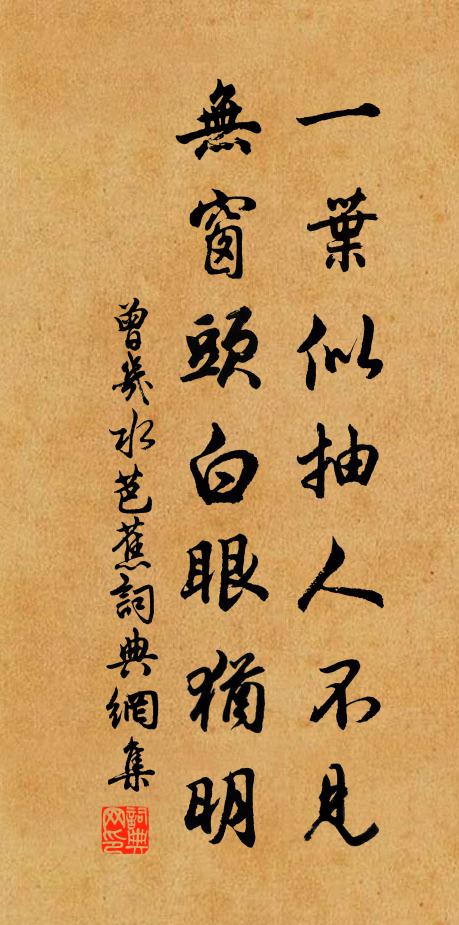 一葉似抽人不見
無窗頭白眼猶明
曾幾水芭蕉詞典網集
詞典网印